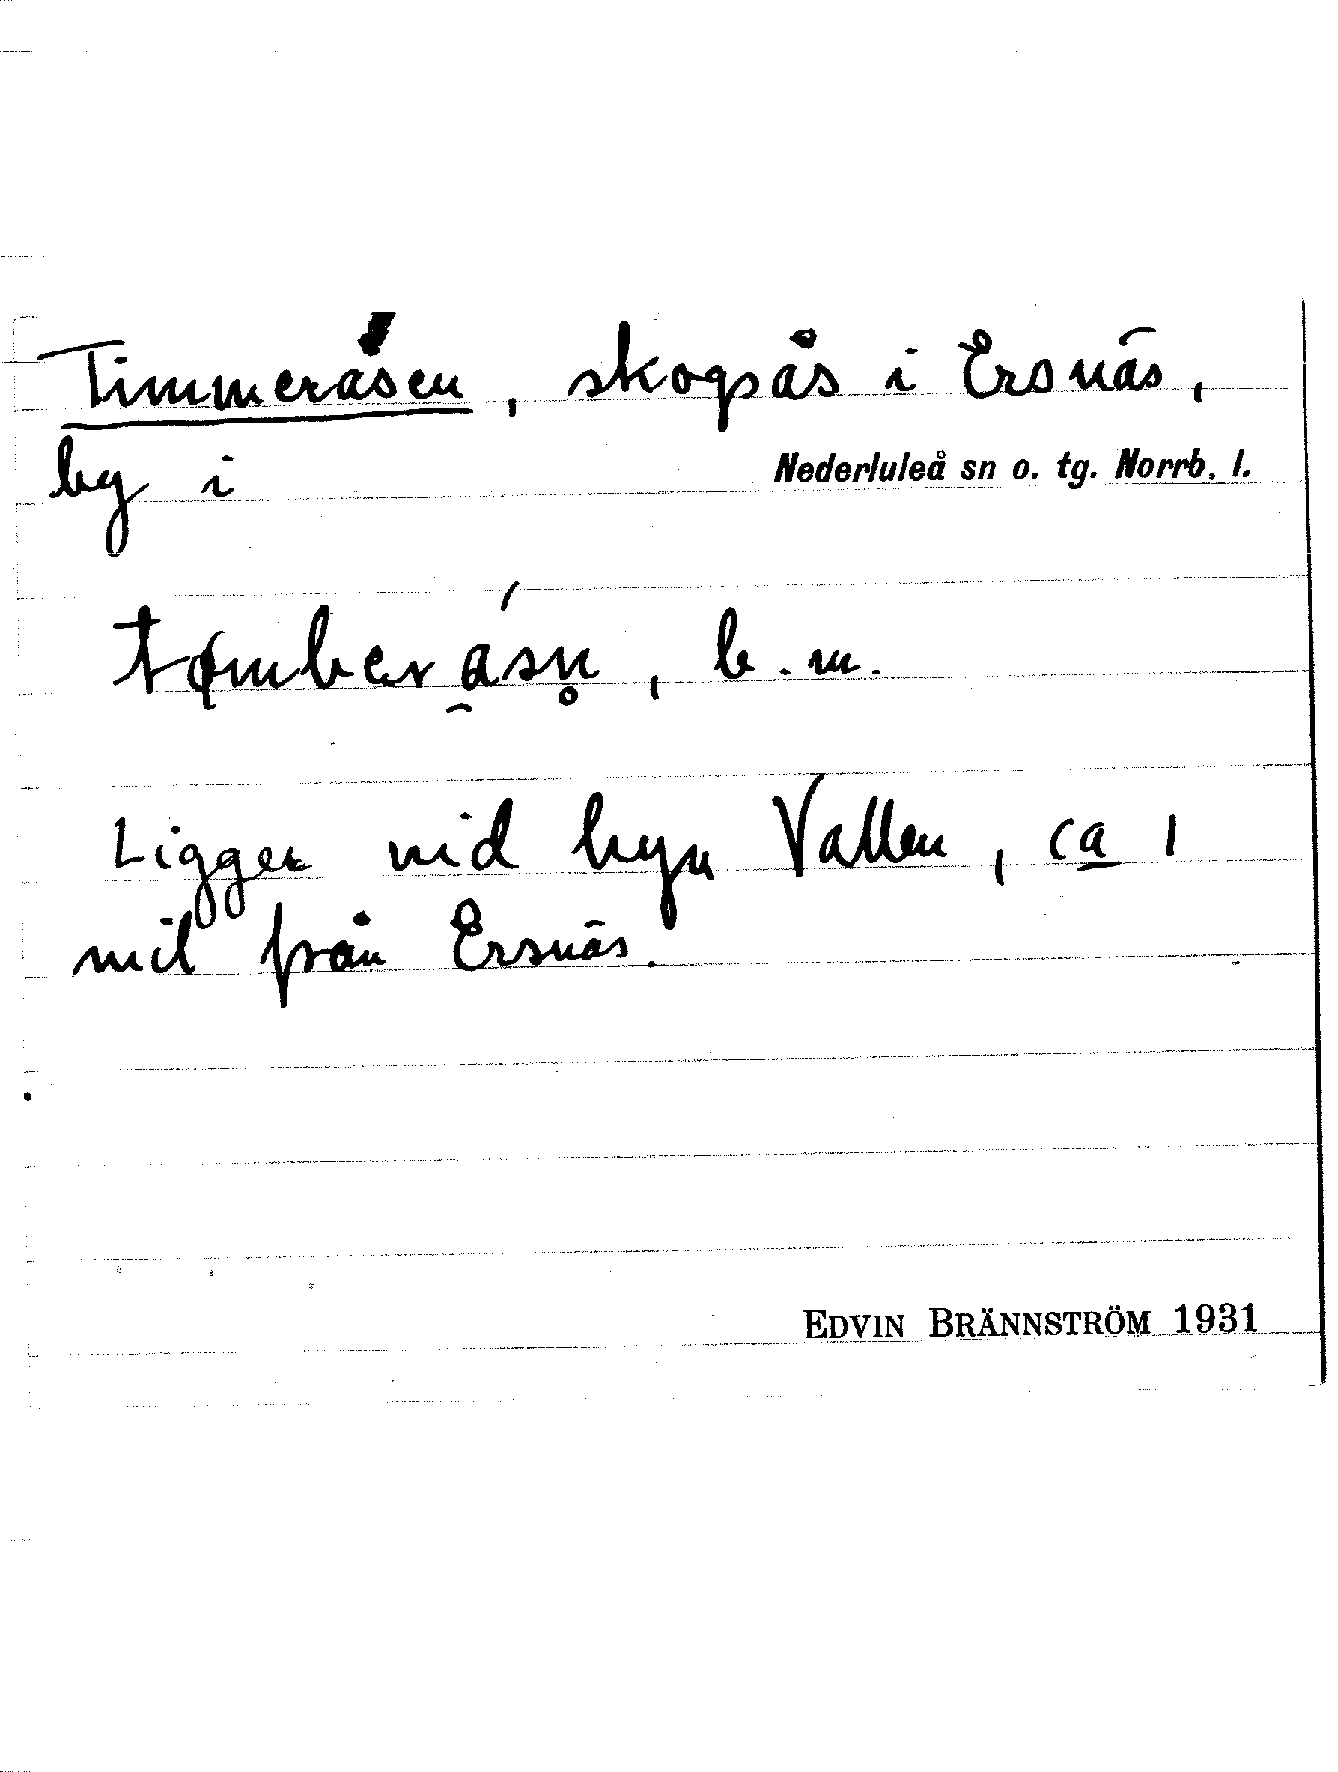 Timmeråsen, skogsås i Ersnäs,
by i Nederluleå sn o. tg. Norrb. l.
tømberásn̥, b.m.
Ligger vid byn Vallen, ca 1
mil från Ersnäs.
EDVIN BRÄNNSTRÖM 1931